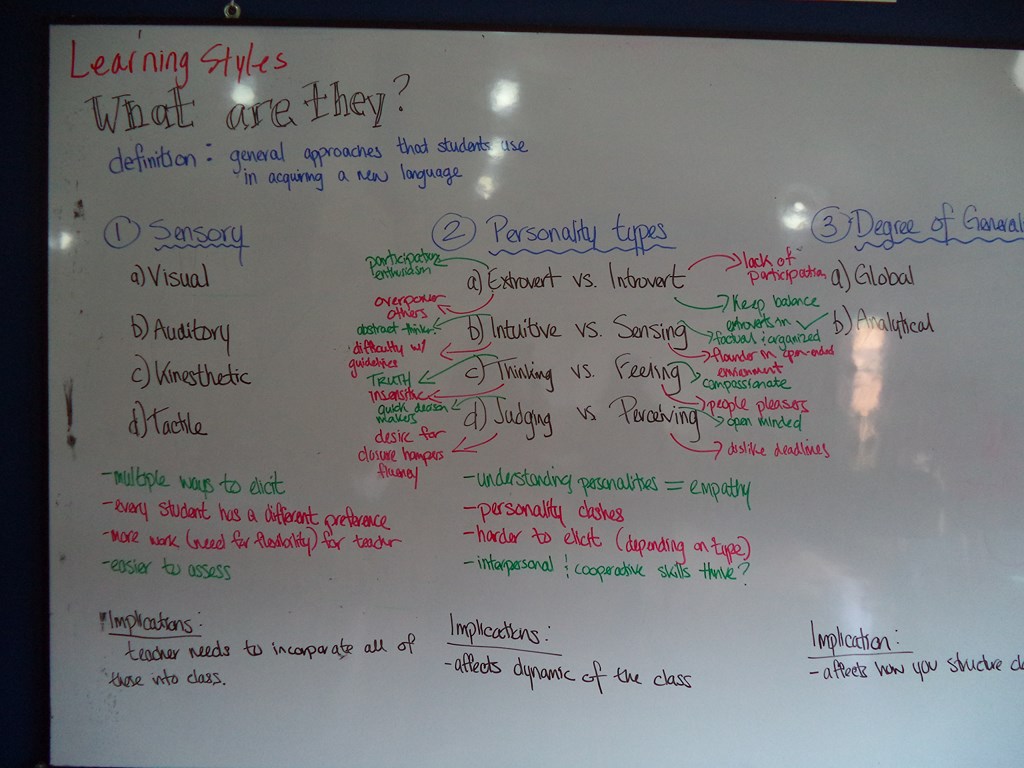 Learning Styles
What are they?
definition: general approaches that students use
in acquiring a new language
① Sensory
a) Visual
b) Auditory
c) Kinesthetic
d) Tactile
- multiple ways to elicit
- every student has a different preference
- more work (need for flexibility) for teacher
- easier to assess
Implications:
teacher needs to incorporate all of
these into class.
② Personality types
participation
enthusiasm
a) Extrovert vs. Introvert
lack of
participation
overpower
others
Keep balance
extroverts in
abstract thinker
b) Intuitive vs. Sensing
factual & organized
difficulty w/
guidelines
flounder in open-ended
enviornment
TRUTH
c) Thinking vs. Feeling
compassionate
insensitive
people pleasers
quick decison
makers
d) Judging vs Perceiving
open minded
desire for
closure hampers
fluency
dislike deadlines
- understanding personalities = empathy
- personality clashes
- harder to elicit (depending on type)
- interpersonal & cooperative skills thrive?
Implications:
- affects dynamic of the class
③ Degree of General
a) Global
b) Analytical
Implication:
- affects how you structure